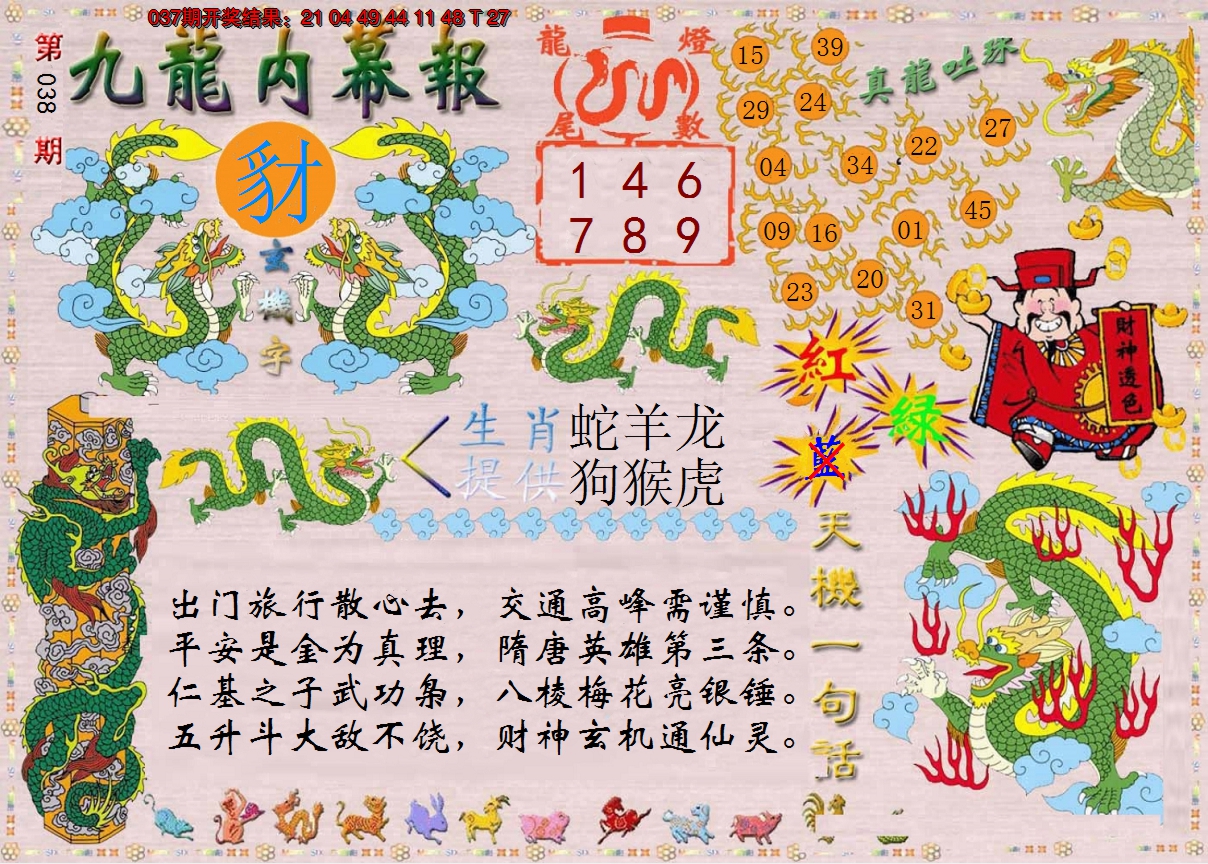 037期开奖结果：21 04 49 44 11 48 T 27
第038期
九龍内幕報
豺
玄機字
龍燈尾數
1 4 6
7 8 9
真龍吐珠
15 39
29 24
04 34 22 27
09 16 01 45
23 20 31
財神透色
紅
綠
藍
生肖提供
蛇羊龙
狗猴虎
天機一句話
出门旅行散心去，交通高峰需谨慎。
平安是金为真理，隋唐英雄第三条。
仁基之子武功枭，八棱梅花亮银锤。
五升斗大敌不饶，财神玄机通仙灵。